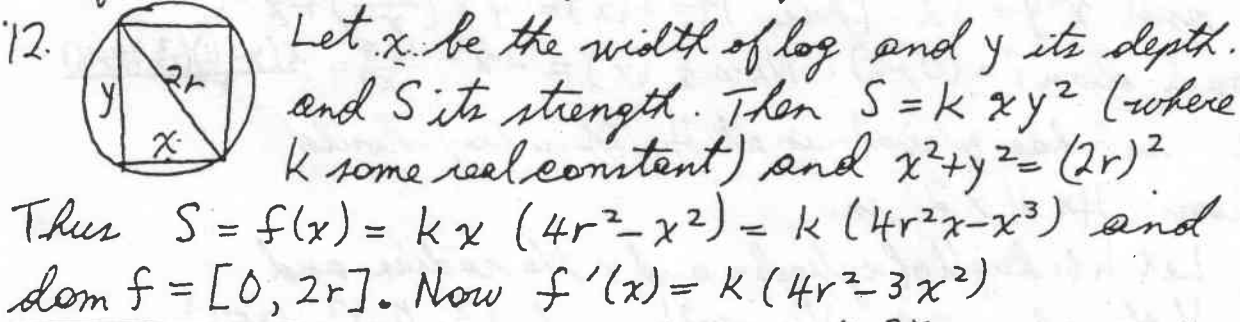 12. Let x be the width of log and y its depth.
y 2r x
and S its strength. Then S = k x y² (where
k some real constant) and x² + y² = (2r)²
Thus S = f(x) = k x (4r² – x²) = k (4r²x – x³) and
dom f = [0, 2r]. Now f'(x) = k (4r² – 3x²)